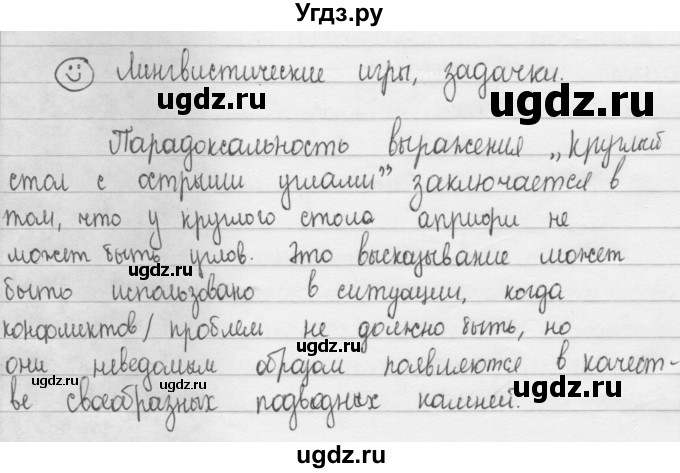 Угдз.ру
☺ Лингвистические игры, задачки.
ugdz.ru
ugdz.ru
Парадоксальность выражения „круглый
стол с острыми углами” заключается в
том, что у круглого стола априори не
может быть углов. Это высказывание может
ugdz.ru
ugdz.ru
быть использовано в ситуации, когда
конфликтов/проблем не должно быть, но
они неведомым образом появляются в качест-
ugdz.ru
ugdz.ru
ugdz.ru
ве своеобразных подводных камней.
ugdz.ru
Угдз.ру